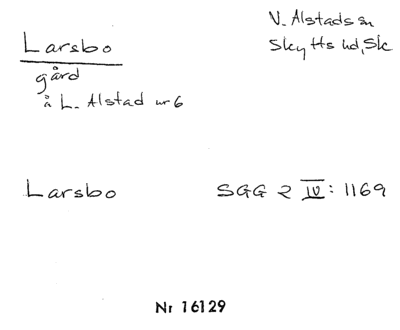 Larsbo
gård
å L. Alstad nr 6
V. Alstads sn
Skytts hd, Sk
Larsbo
SGG 2 IV: 1169
Nr 16129